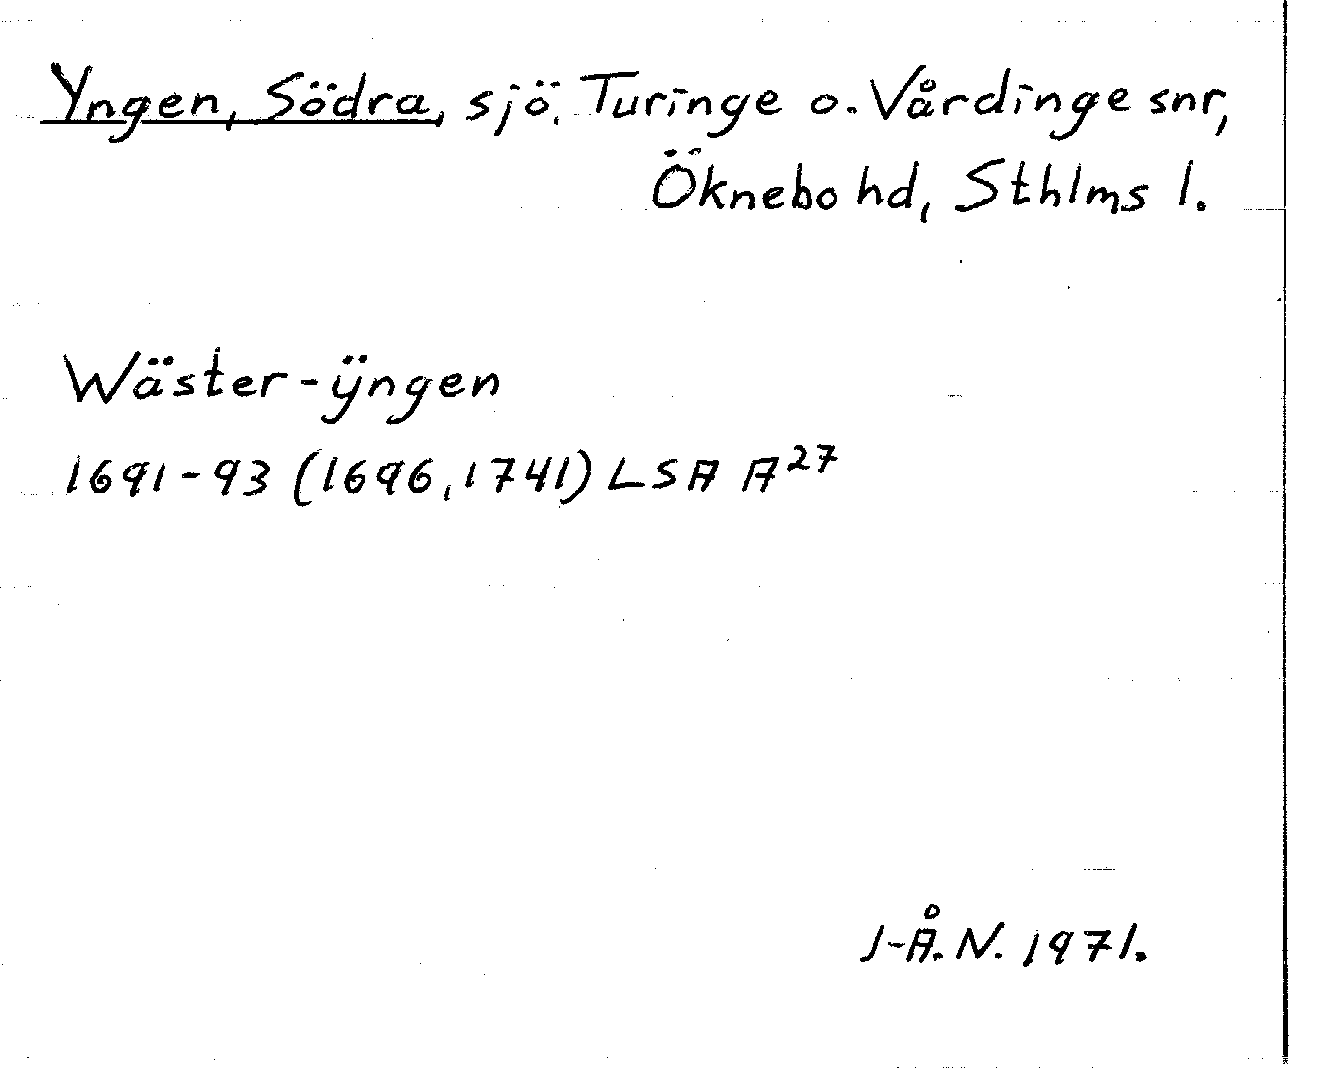 Yngen, Södra, sjö, Turinge o. Vårdinge snr,
Öknebo hd, Sthlms l.
Wäster-ÿngen
1691-93 (1696, 1741) LSA A27
J-Å. N. 1971.